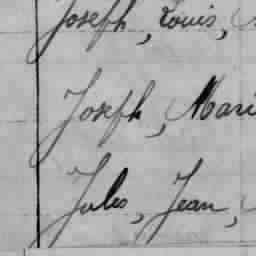 Joseph, Louis,
Joseph, Mari
Jules, Jean,